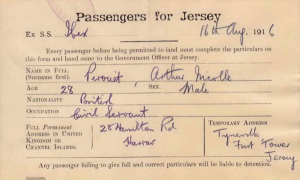 Passengers for Jersey
Ex S.S. Ibex 16th Aug. 1916
Every passenger before being permitted to land must complete the particulars on
this form and hand same to the Government Officer at Jersey.
NAME IN FULL
(SURNAME FIRST) Arthur
AGE 28 SEX. Male
NATIONALITY British
OCCUPATION Civil Servant
FULL Permanent
ADDRESS IN UNITED
KINGDOM OR
CHANNEL ISLANDS. 28 Hamilton Rd
Harrow
TEMPORARY ADDRESS
First Tower
Jersey
Any passenger failing to give full and correct particulars will be liable to detention.